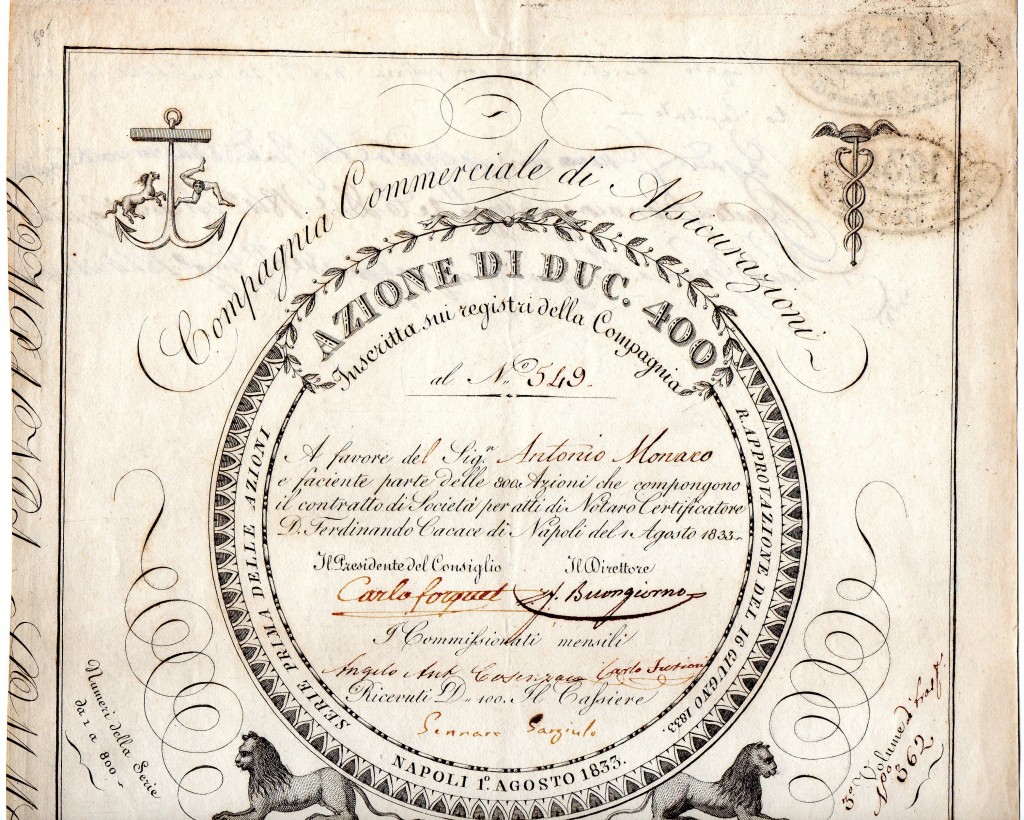 Compagnia Commerciale di Assicurazioni
AZIONE DI DUC. 400
Inscritta sui registri della Compagnia
al N.º 549.
A favore del Sig.r Antonio Monaco
e faciente parte delle 800. Azioni che compongono
il contratto di Società per atti di Notaro Certificatore
D. Ferdinando Cacace di Napoli del 1 Agosto 1833.
Il Presidente del Consiglio Il Direttore
Carlo Forquet Buongiorno
I Commissionati mensili
Angelo Ant. Carlo
Ricevuti D. 100. Il Cassiere
Gennaro Gargiulo
SERIE PRIMA DELLE AZIONI
R. APPROVAZIONE DEL 16 GIUGNO 1833.
NAPOLI 1º. AGOSTO 1833.
Numeri della Serie
da 1 a 800
3º Volume
Nº 362